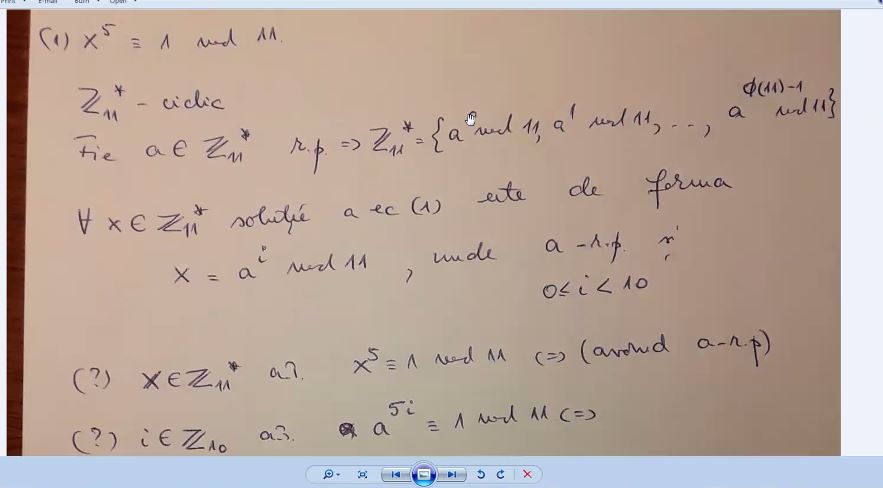 Print E-mail Burn Open
(1) x⁵ ≡ 1 mod 11.
ℤ₁₁* - ciclic
ϕ(11)-1
Fie a ∈ ℤ₁₁* r.p. => ℤ₁₁* = {a⁰ mod 11, a¹ mod 11, ..., a mod 11}
∀ x ∈ ℤ₁₁* soluție a ec (1) este de forma
x = aⁱ mod 11, unde a - r.p. și
0 ≤ i < 10
(?) x ∈ ℤ₁₁* aî. x⁵ ≡ 1 mod 11 <=> (având a - r.p)
(?) i ∈ ℤ₁₀ aî. a⁵ⁱ ≡ 1 mod 11 <=>